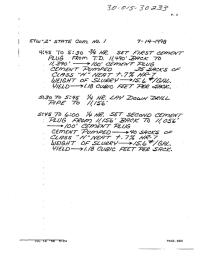 30-015-30233
P. 2
STW"Z" STATE COM. NO. 1 7-14-1998
4:45 TO 5:30 3/4 HR. SET FIRST CEMENT
PLUG FROM T.D. 11,490' BACK TO
11,390' → 100' CEMENT PLUG
CEMENT PUMPED → 35 SACKS OF
CLASS "H" NEAT + .7% HR-7
WEIGHT OF SLURRY → 15.6 #/GAL.
YIELD → 1.18 CUBIC FEET PER SACK.
5:30 TO 5:45 1/4 HR. LAY DOWN DRILL
PIPE TO 11,156'
5:45 TO 6:00 1/4 HR. SET SECOND CEMENT
PLUG FROM 11,156' BACK TO 11,056'
→ 100' CEMENT PLUG
CEMENT PUMPED → 40 SACKS OF
CLASS "H" NEAT + .7% HR-7
WEIGHT OF SLURRY → 15.6 #/GAL.
YIELD → 1.18 CUBIC FEET PER SACK.